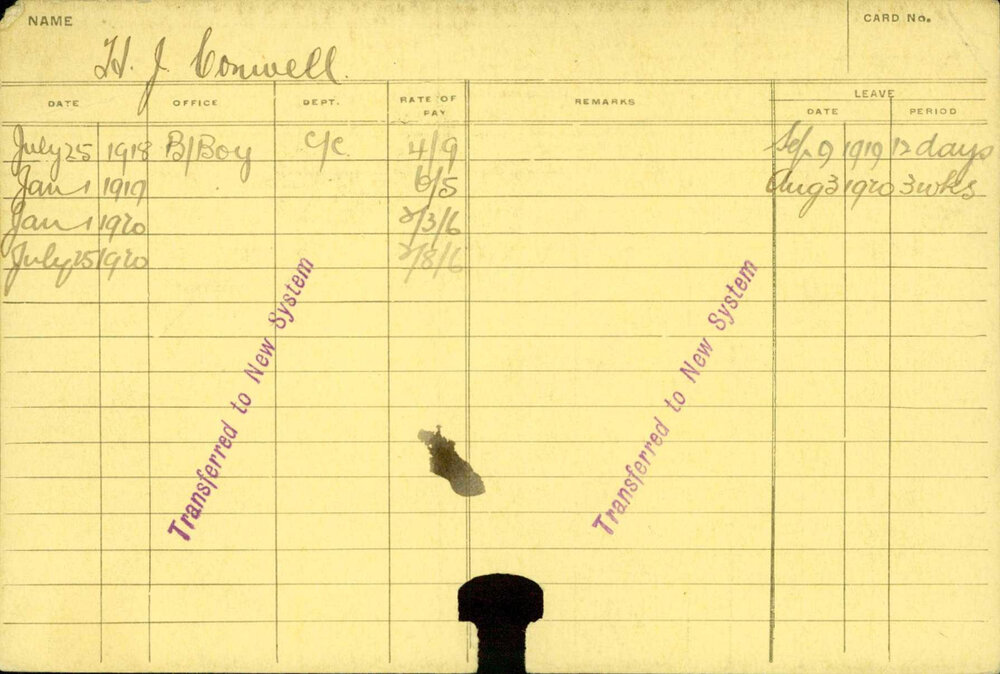 NAME
CARD No.
H. J. Conwell.
DATE OFFICE DEPT. RATE OF PAY REMARKS LEAVE
DATE PERIOD
July 25 1918 B/Boy C/C 4/9 Sep. 9 1919 12 days
Jan 1 1919 6/5 Aug 3 1920 3 wks
Jan 1 1920 2/3/6
July 25 1920 2/8/6
Transferred to New System
Transferred to New System